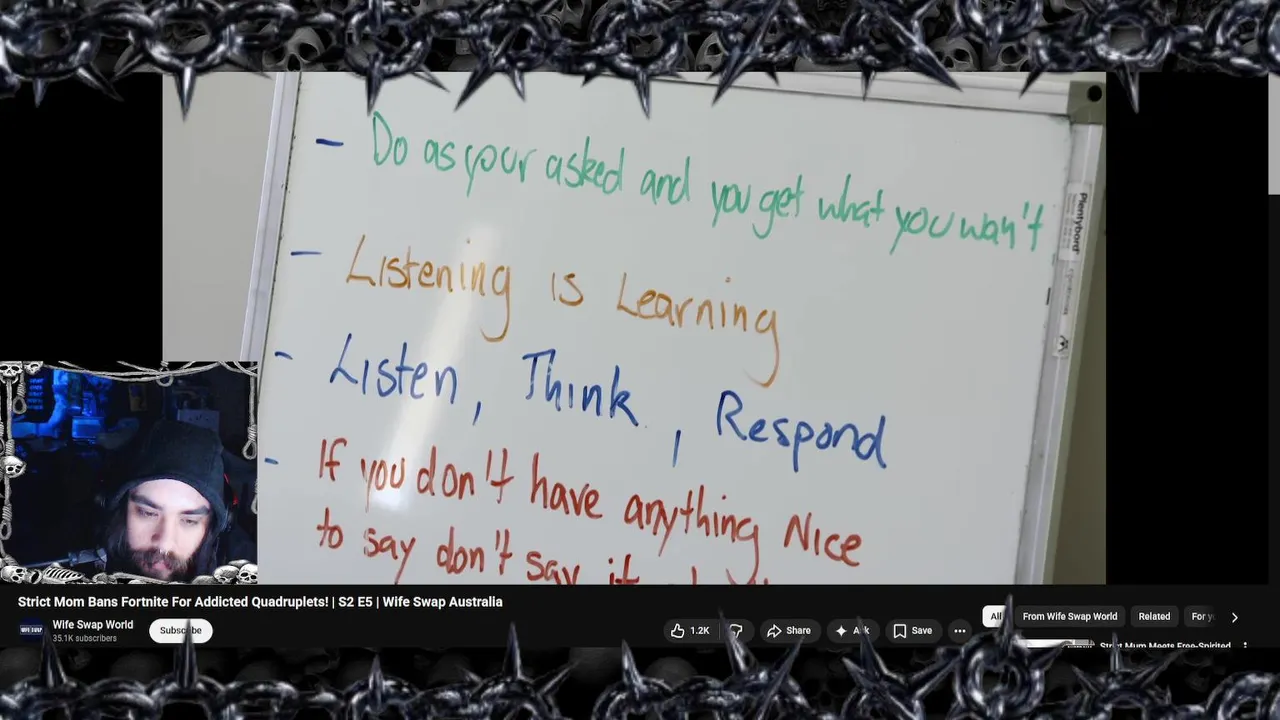 - Do as your asked and you get what you wan't
- Listening is Learning
- Listen, Think, Respond
- If you don't have anything Nice
to say don't say it
Plentybord
Strict Mom Bans Fortnite For Addicted Quadruplets! | S2 E5 | Wife Swap Australia
WIFE SWAP
Wife Swap World
35.1K subscribers
Subscribe
1.2K
Share
Ask
Save
All
From Wife Swap World
Related
For
Strict Mum Meets Free-Spirited